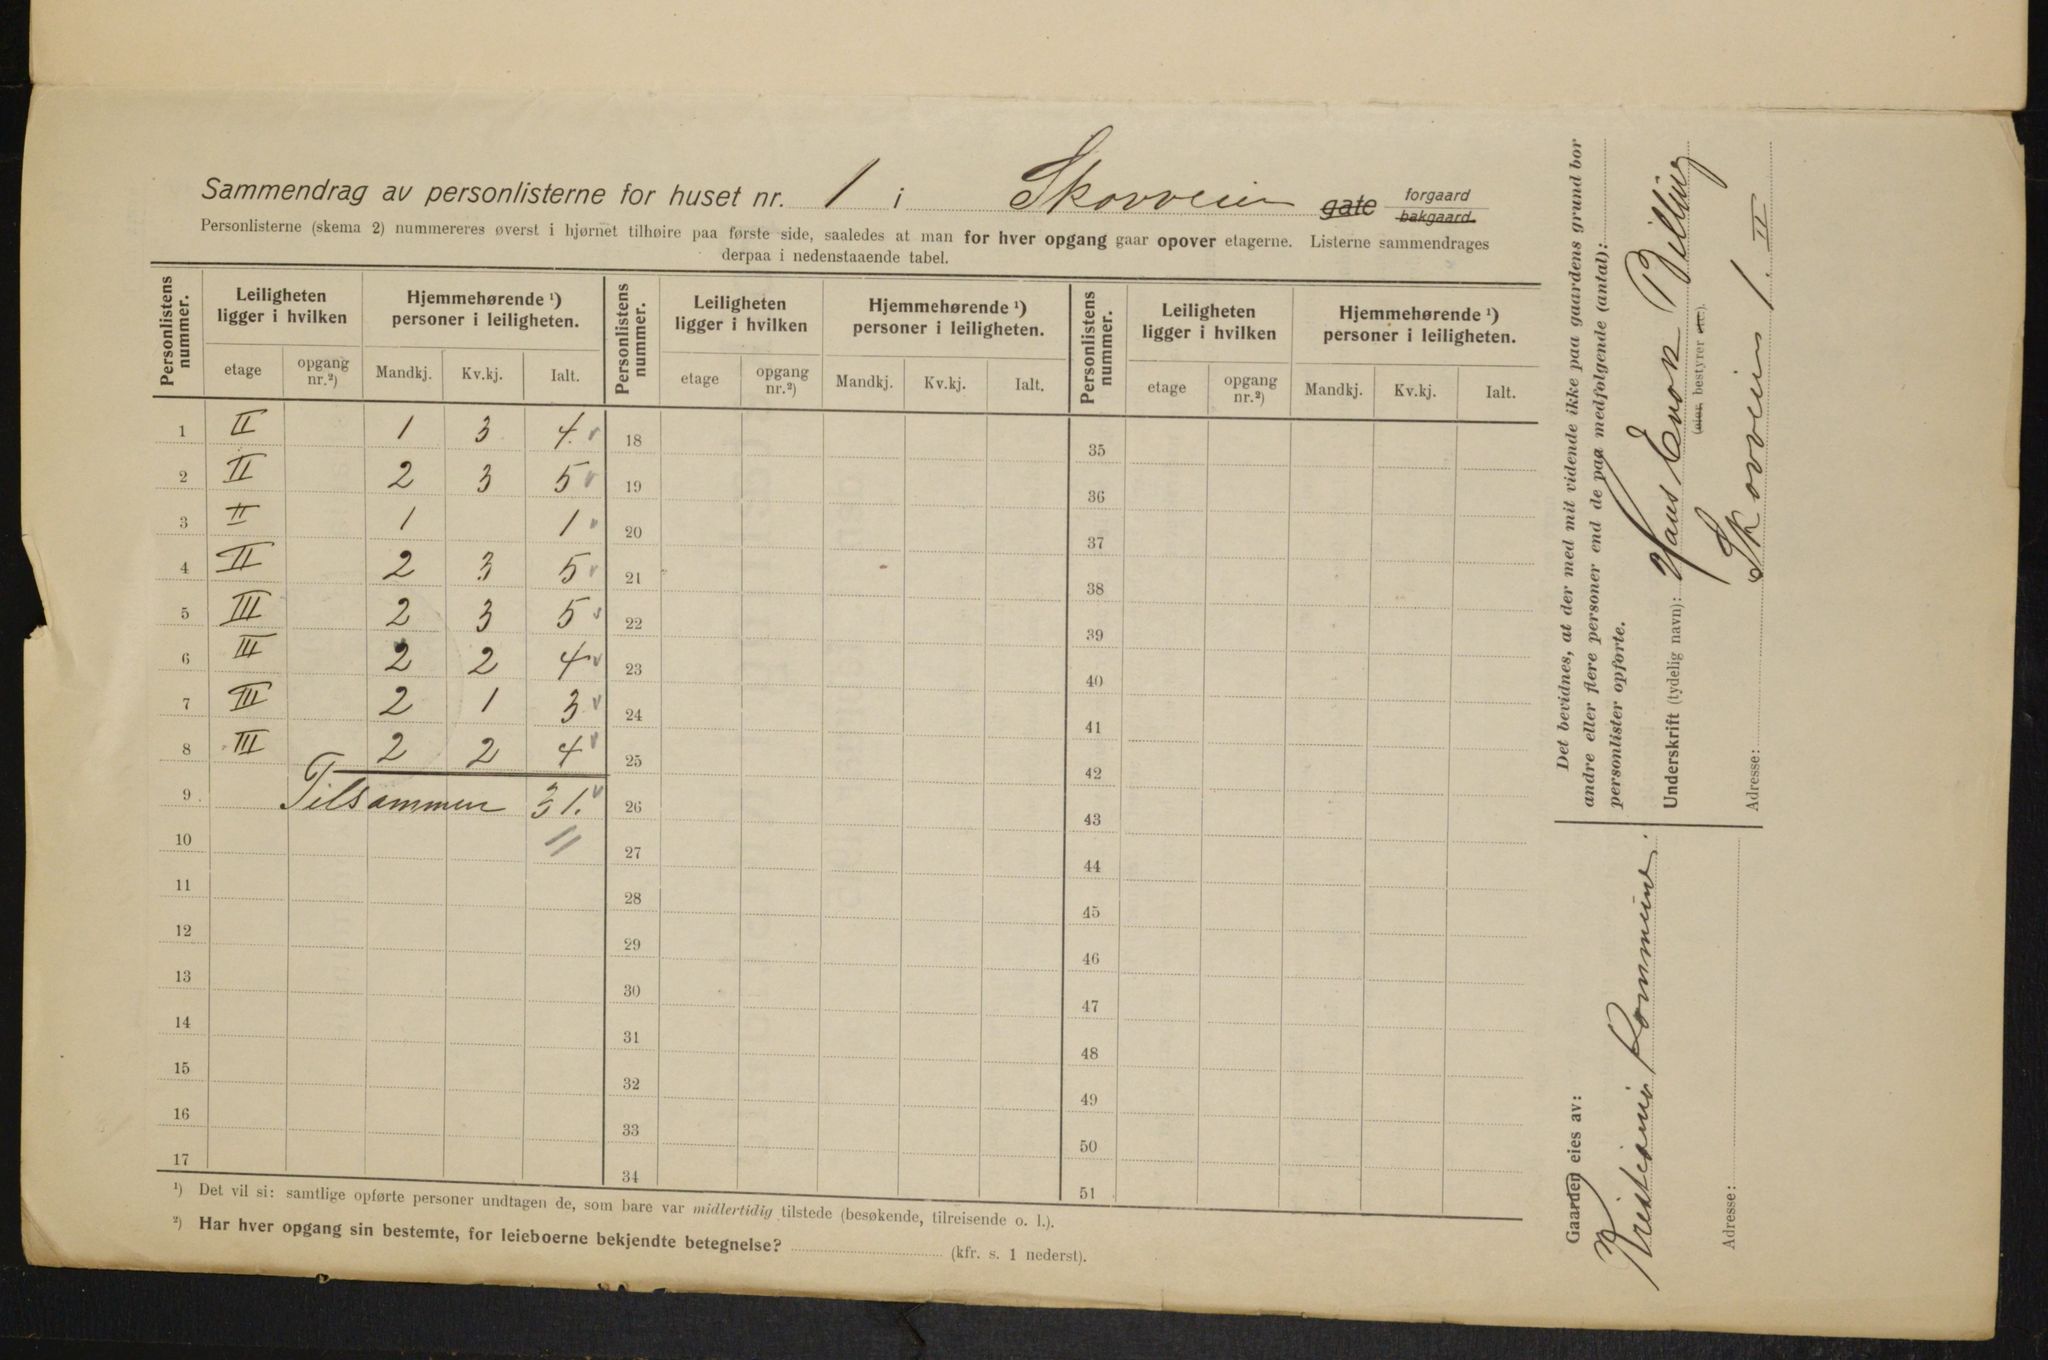 Sammendrag av personlisterne for huset nr. 1 i Skovveien gate forgaard bakgaard.
Personlisterne (skema 2) nummereres øverst i hjørnet tilhøire paa første side, saaledes at man for hver opgang gaar opover etagerne. Listerne sammendrages
derpaa i nedenstaaende tabel.
Personlistens nummer. Leiligheten ligger i hvilken Hjemmehørende ¹) personer i leiligheten. Personlistens nummer. Leiligheten ligger i hvilken Hjemmehørende ¹) personer i leiligheten. Personlistens nummer. Leiligheten ligger i hvilken Hjemmehørende ¹) personer i leiligheten.
etage opgang nr.²) Mandkj. Kv.kj. Ialt. etage opgang nr.²) Mandkj. Kv.kj. Ialt. etage opgang nr.²) Mandkj. Kv.kj. Ialt.
1 II 1 3 4. 18 35
2 II 2 3 5 19 36
3 II 1 1 20 37
4 II 2 3 5 21 38
5 III 2 3 5 22 39
6 III 2 2 4 23 40
7 III 2 1 3 24 41
8 III 2 2 4 25 42
9 Tilsammen 31. 26 43
10 27 44
11 28 45
12 29 46
13 30 47
14 31 48
15 32 49
16 33 50
17 34 51
¹) Det vil si: samtlige opførte personer undtagen de, som bare var midlertidig tilstede (besøkende, tilreisende o. l.).
²) Har hver opgang sin bestemte, for leieboerne bekjendte betegnelse? (kfr. s. 1 nederst).
Det bevidnes, at der med mit vidende ikke paa gaardens grund bor
andre eller flere personer end de paa medfølgende (antal):
personlister opførte.
Underskrift (tydelig navn): Hans Enok Billing
(eier, bestyrer etc.).
Adresse: Skovveien 1. II
Gaarden eies av:
Kristiania Kommune.
Adresse: